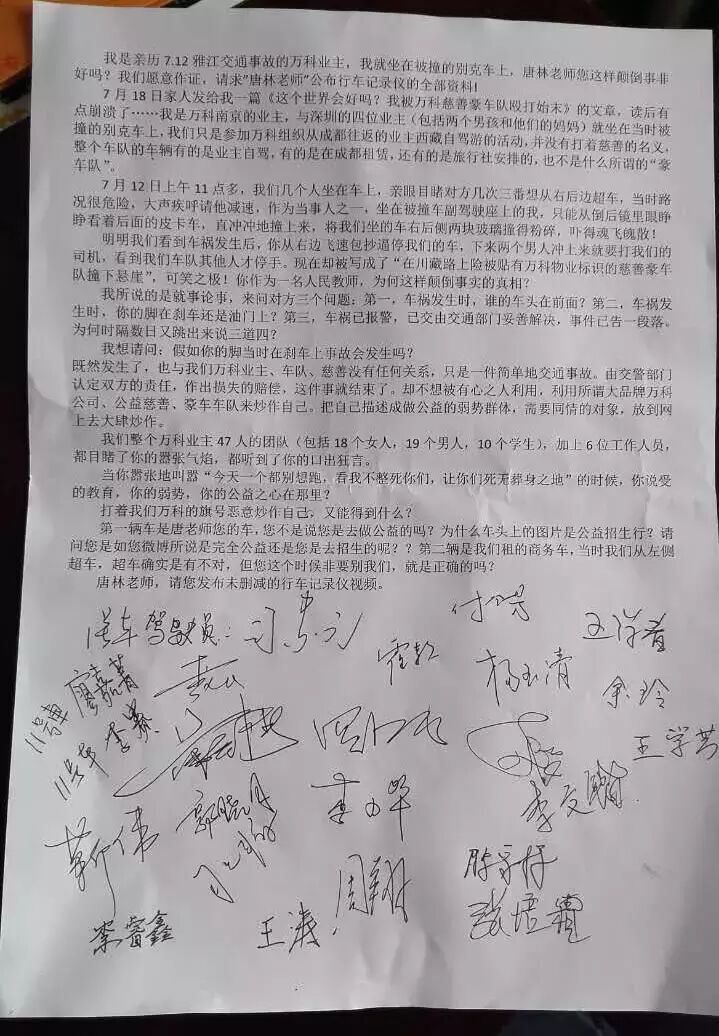 我是亲历 7.12 雅江交通事故的万科业主，我就坐在被撞的别克车上，唐林老师您这样颠倒事非
好吗？我们愿意作证，请求"唐林老师"公布行车记录仪的全部资料！
7 月 18 日家人发给我一篇《这个世界会好吗？我被万科慈善豪车队殴打始末》的文章，读后有
点崩溃了……我是万科南京的业主，与深圳的四位业主（包括两个男孩和他们的妈妈）就坐在当时被
撞的别克车上，我们只是参加万科组织从成都往返的业主西藏自驾游的活动，并没有打着慈善的名义，
整个车队的车辆有的是业主自驾，有的是在成都租赁，还有的是旅行社安排的，也不是什么所谓的"豪
车队"。
7 月 12 日上午 11 点多，我们几个人坐在车上，亲眼目睹对方几次三番想从右后边超车，当时路
况很危险，大声疾呼请他减速，作为当事人之一，坐在被撞车副驾驶座上的我，只能从倒后镜里眼睁
睁看着后面的皮卡车，直冲冲地撞上来，将我们坐的车右后侧两块玻璃撞得粉碎，吓得魂飞魄散！
明明我们看到车祸发生后，你从右边飞速包抄逼停我们的车，下来两个男人冲上来就要打我们的
司机，看到我们车队其他人才停手。现在却被写成了"在川藏路上险被贴有万科物业标识的慈善豪车
队撞下悬崖"，可笑之极！你作为一名人民教师，为何这样颠倒事实的真相？
我所说的是就事论事，来问对方三个问题：第一，车祸发生时，谁的车头在前面？第二，车祸发
生时，你的脚在刹车还是油门上？第三，车祸已报警，已交由交通部门妥善解决，事件已告一段落。
为何时隔数日又跳出来说三道四？
我想请问：假如你的脚当时在刹车上事故会发生吗？
既然发生了，也与我们万科业主、车队、慈善没有任何关系，只是一件简单地交通事故。由交警部门
认定双方的责任，作出损失的赔偿，这件事就结束了。却不想被有心之人利用，利用所谓大品牌万科
公司、公益慈善、豪车车队来炒作自己。把自己描述成做公益的弱势群体，需要同情的对象，放到网
上去大肆炒作。
我们整个万科业主 47 人的团队（包括 18 个女人，19 个男人，10 个学生），加上 6 位工作人员，
都目睹了你的嚣张气焰，都听到了你的口出狂言。
当你嚣张地叫嚣"今天一个都别想跑，看我不整死你们，让你们死无葬身之地"的时候，你说受
的教育，你的弱势，你的公益之心在那里？
打着我们万科的旗号恶意炒作自己，又能得到什么？
第一辆车是唐老师您的车，您不是说您是去做公益的吗？为什么车头上的图片是公益招生行？请
问您是如您微博所说是完全公益还是您是去招生的呢？？第二辆是我们租的商务车，当时我们从左侧
超车，超车确实是有不对，但您这个时候非要别我们，就是正确的吗？
唐林老师，请您发布未删减的行车记录仪视频。
杨玉清
余玲
11号车 廖嘉菁
王学芳
11号车
靳伟
郭晓月
周翔
王涛